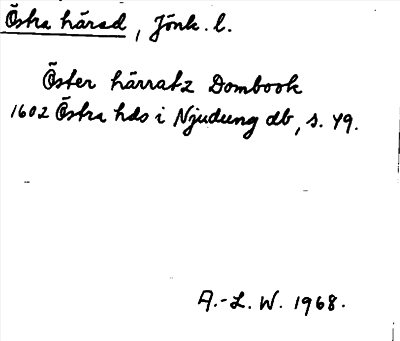 Östra härad, Jönk. l.
Öster härratz Dombook
1602 Östra hds i Njudung db, s. 49.
A.-L. W. 1968.